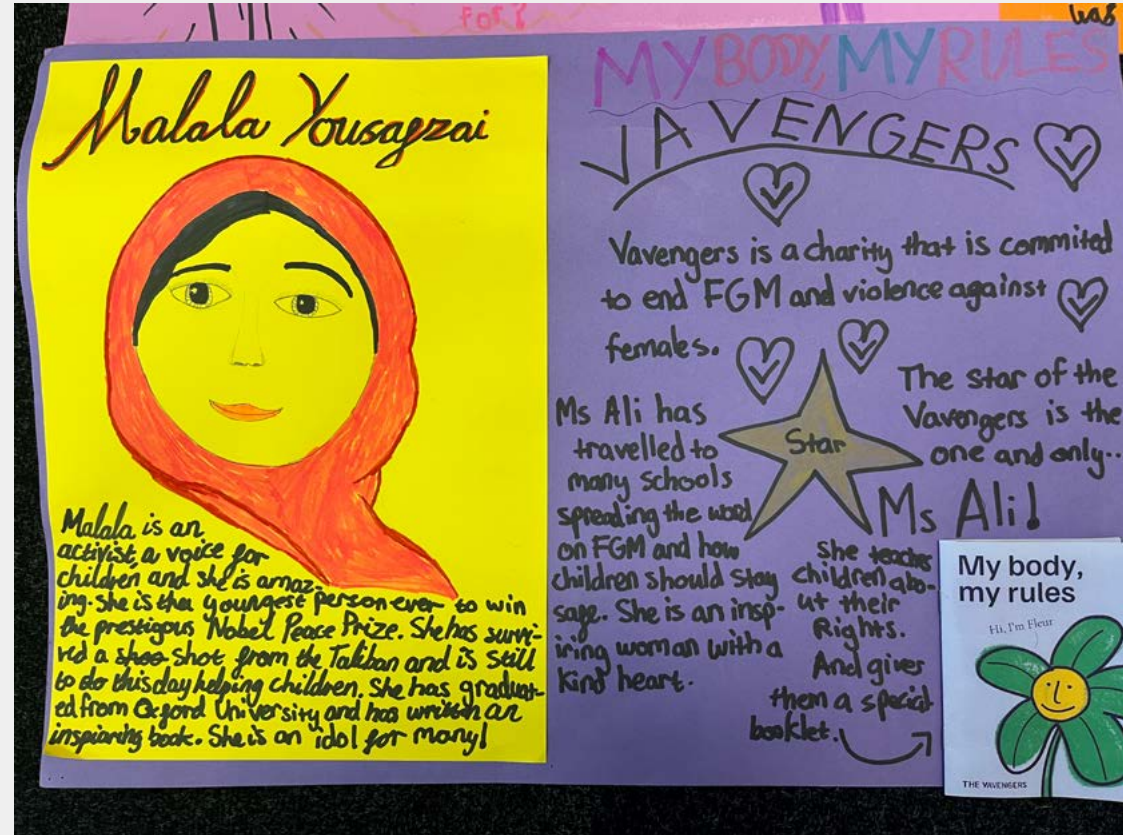 FOR?
was
Malala Yousagzai
Malala is an
activist, a voice for
children and she is amaz-
ing. She is the youngest person ever to win
the prestigous Nobel Peace Prize. She has survi-
ved a shoo shot from the Taliban and is still
to do this day helping children. She has graduat-
ed from Oxford University and has written an
inspiaring book. She is an idol for many!
MY BODY, MY RULES
VAVENGERS
Vavengers is a charity that is commited
to end FGM and violence against
females.
The star of the
Vavengers is the
one and only..
Ms Ali!
Star
Ms Ali has
travelled to
many schools
spreading the word
on FGM and how
children should stay
sage. She is an insp-
iring woman with a
kind heart.
She teaches
children abo-
ut their
Rights.
And gives
them a special
booklet.
My body,
my rules
Hi, I'm Fleur
THE VAVENGERS